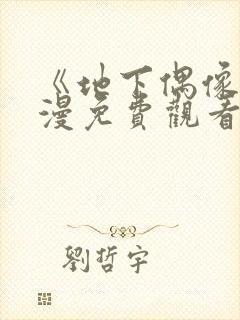 《地下偶像
漫免費觀看
劉哲宇